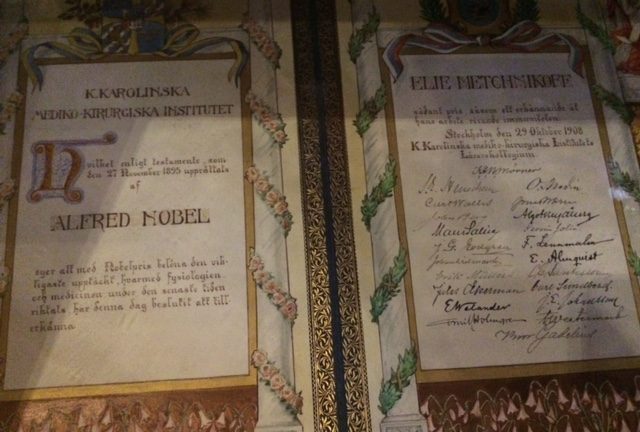 K. KAROLINSKA
MEDIKO-KIRURGISKA INSTITUTET
Hvilket enligt testamente, som
den 27 November 1895 upprättats
af
ALFRED NOBEL
eger att med Nobelpris belöna den vik-
tigaste upptäckt, hvarmed fysiologien
och medicinen under den senaste tiden
riktats har denna dag beslutit att till-
erkänna
ELIE METCHNIKOFF
nådant pris såsom ett erkännande åt
hans arbete rörande immuniteten
Stockholm den 29 Oktober 1908
K. Karolinska mediko-kirurgiska Institutets
Lärarekollegium
Mörner
O. Medin
Curt Wallis
J. G. Edgren
F. Lennmalm
E. Almquist
Jules Åkerman Carl Sundberg
E. Welander J. E. Johansson
Emil Holmgren A. Westermark
Gadelius